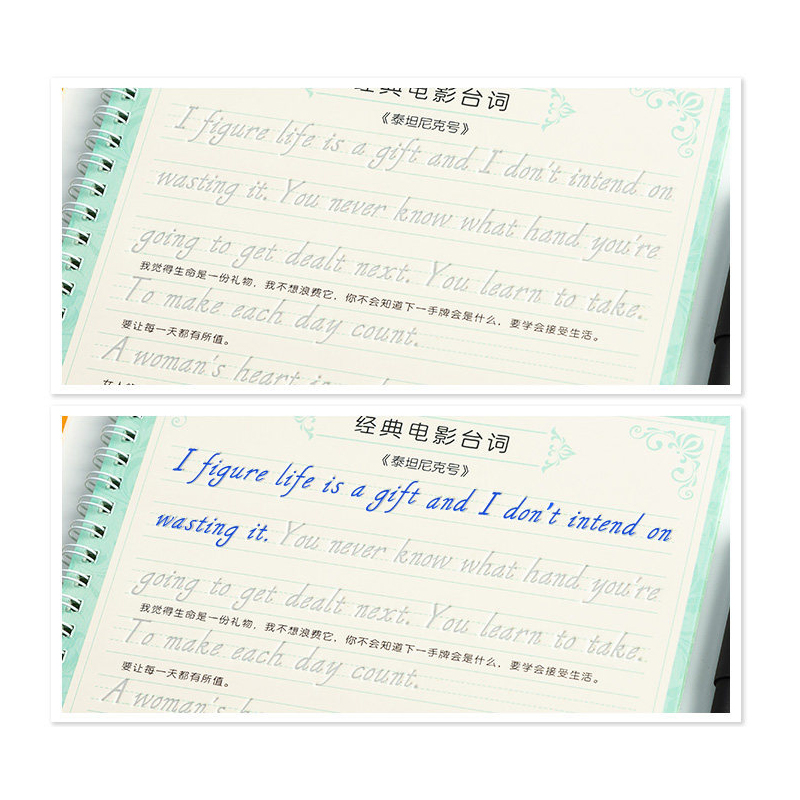 经典电影台词
《泰坦尼克号》
I figure life is a gift and I don't intend on
wasting it. You never know what hand you're
going to get dealt next. You learn to take.
我觉得生命是一份礼物，我不想浪费它，你不会知道下一手牌会是什么，要学会接受生活。
To make each day count.
要让每一天都有所值。
A woman's heart is
经典电影台词
《泰坦尼克号》
I figure life is a gift and I don't intend on
wasting it. You never know what hand you're
going to get dealt next. You learn to take.
我觉得生命是一份礼物，我不想浪费它，你不会知道下一手牌会是什么，要学会接受生活。
To make each day count.
要让每一天都有所值。
A woman's